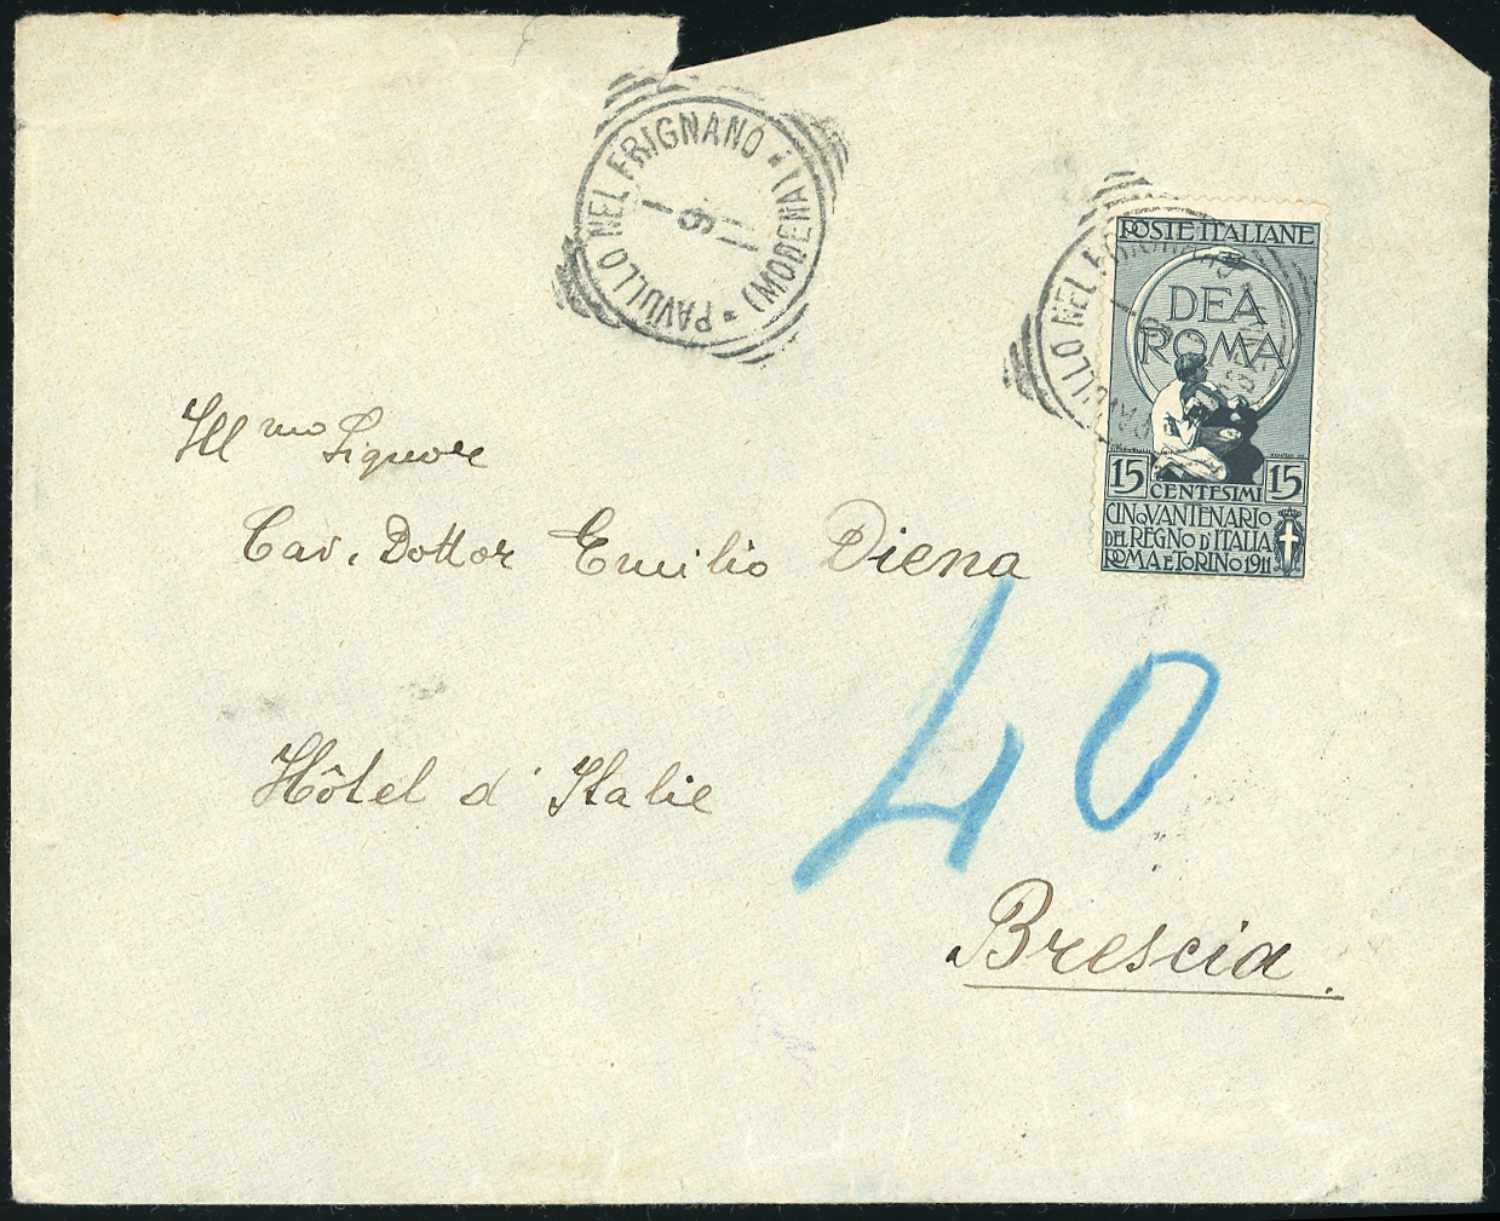 PAVULLO NEL FRIGNANO * (MODENA) *
9
POSTE ITALIANE
DEA
ROMA
15 CENTESIMI 15
CINQVANTENARIO
DEL REGNO D'ITALIA
ROMA E TORINO 1911
Ill mo Signore
Cav. Dottor Emilio Diena
40
Hôtel d'Italie
Brescia.